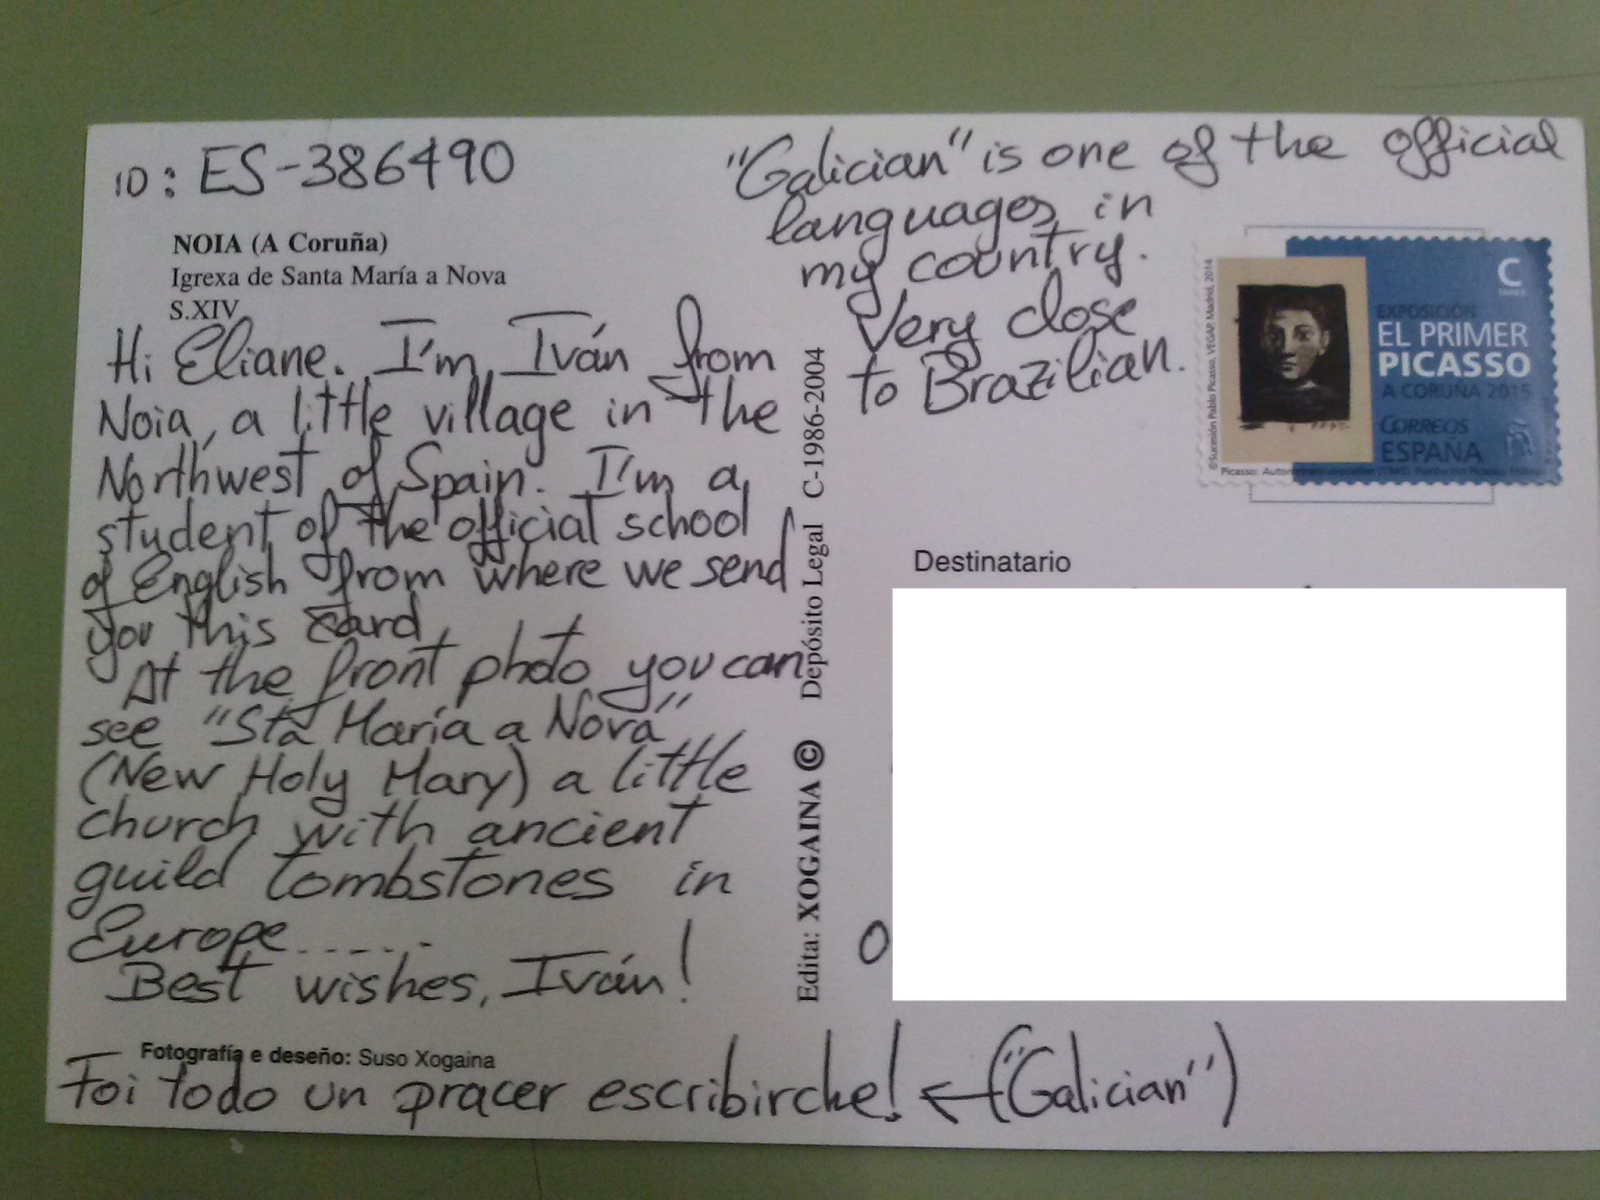 ID: ES-386490
NOIA (A Coruña)
Igrexa de Santa María a Nova
S.XIV
Hi Eliane. I'm Iván from
Noia, a little village in the
Northwest of Spain. I'm a
student of the official school
of English from where we send
you this card
At the front photo you can
see "Sta María a Nova"
(New Holy Mary) a little
church with ancient
guild tombstones in
Europe......
Best wishes, Iván!
Fotografía e deseño: Suso Xogaina
Foi todo un pracer escribirche! ← ("Galician")
Edita: XOGAINA © Depósito Legal C-1986-2004
"Galician" is one of the official
languages in
my country.
Very close
to Brazilian.
©Sucesión Pablo Picasso, VEGAP, Madrid, 2014
C
EXPOSICIÓN
EL PRIMER
PICASSO
A CORUÑA 2015
CORREOS
ESPAÑA
Picasso:
Destinatario
O